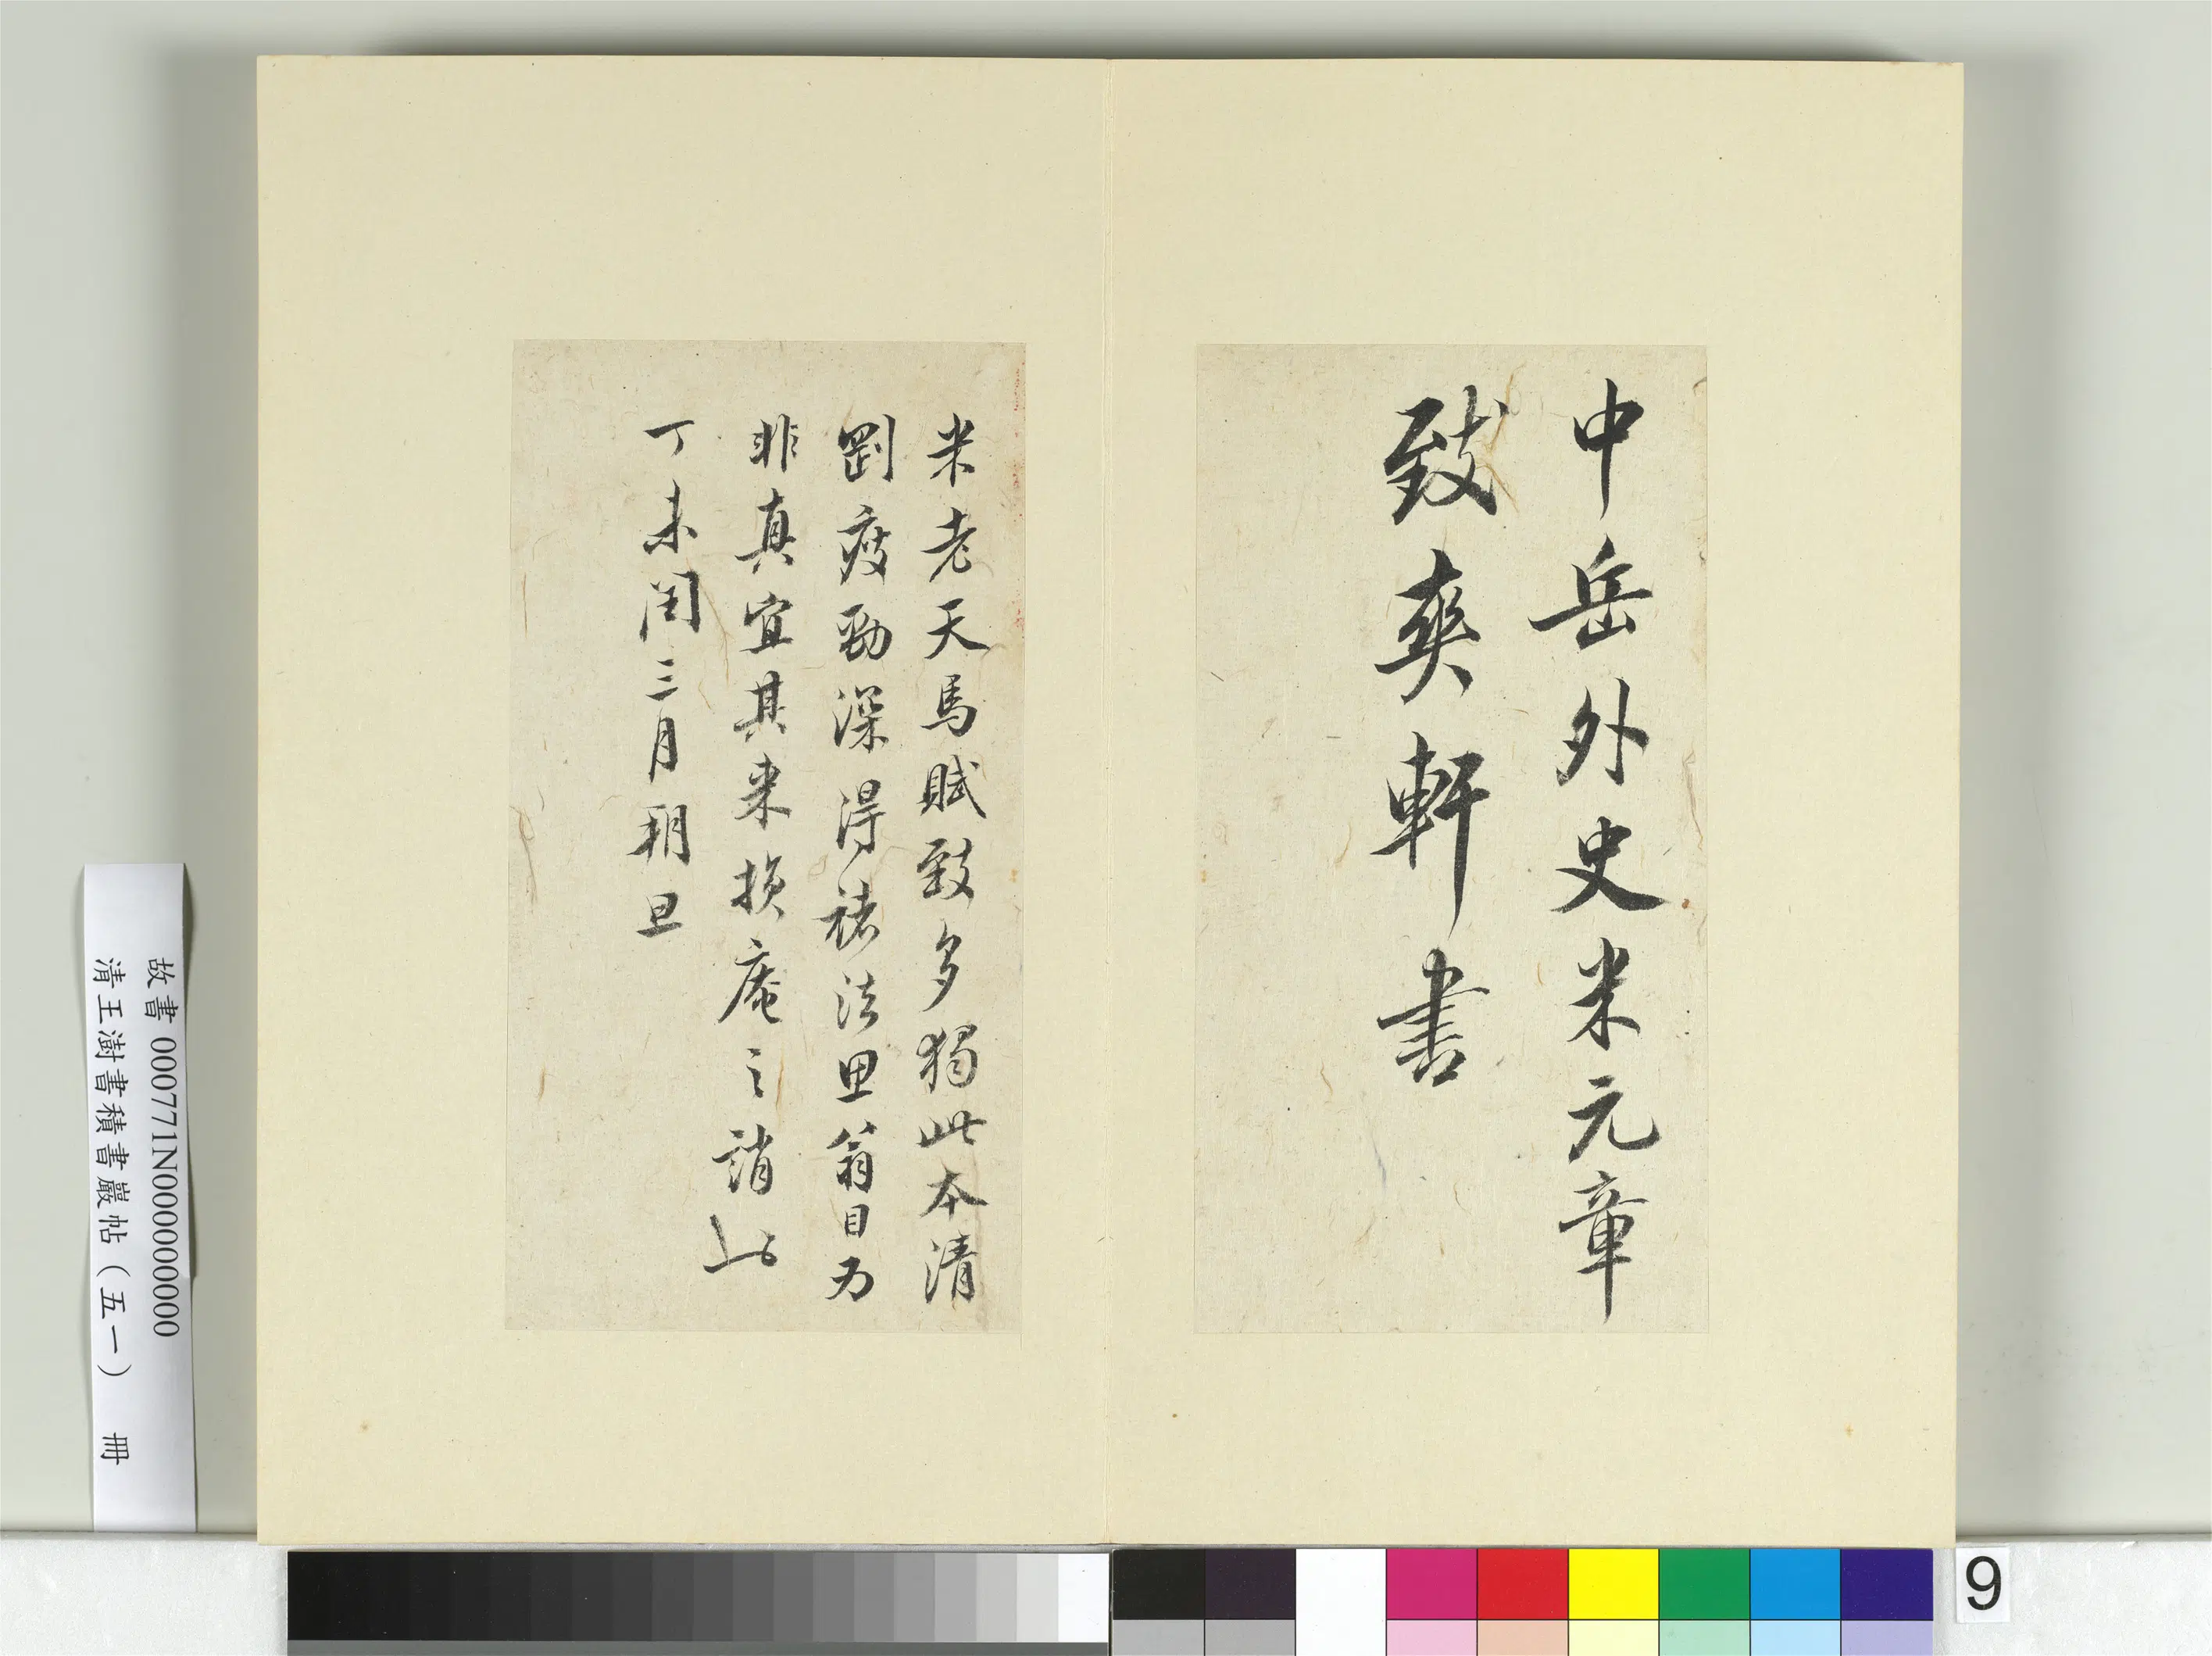 中岳外史米元章
致爽軒書
米老天馬賦致多獨此本清
剛瘦勁深得褚法思翁目為
非真宜其來損庵之誚也
丁未閏三月朔旦
故書 000771N000000000
清王澍書積書巖帖（五一） 冊
9